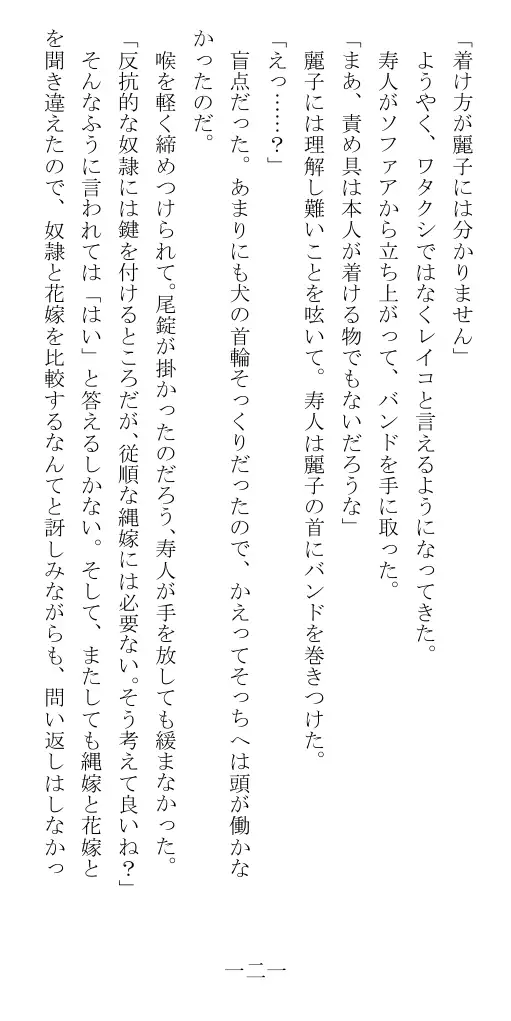 「着け方が麗子には分かりません」
　ようやく、ワタクシではなくレイコと言えるようになってきた。
　寿人がソファアから立ち上がって、バンドを手に取った。
「まあ、責め具は本人が着ける物でもないだろうな」
　麗子には理解し難いことを呟いて。寿人は麗子の首にバンドを巻きつけた。
「えっ……？」
　盲点だった。あまりにも犬の首輪そっくりだったので、かえってそっちへは頭が働かな
かったのだ。
　喉を軽く締めつけられて。尾錠が掛かったのだろう、寿人が手を放しても緩まなかった。
「反抗的な奴隷には鍵を付けるところだが、従順な縄嫁には必要ない。そう考えて良いね？」
　そんなふうに言われては「はい」と答えるしかない。そして、またしても縄嫁と花嫁と
を聞き違えたので、奴隷と花嫁を比較するなんてと訝しみながらも、問い返しはしなかっ
一二一